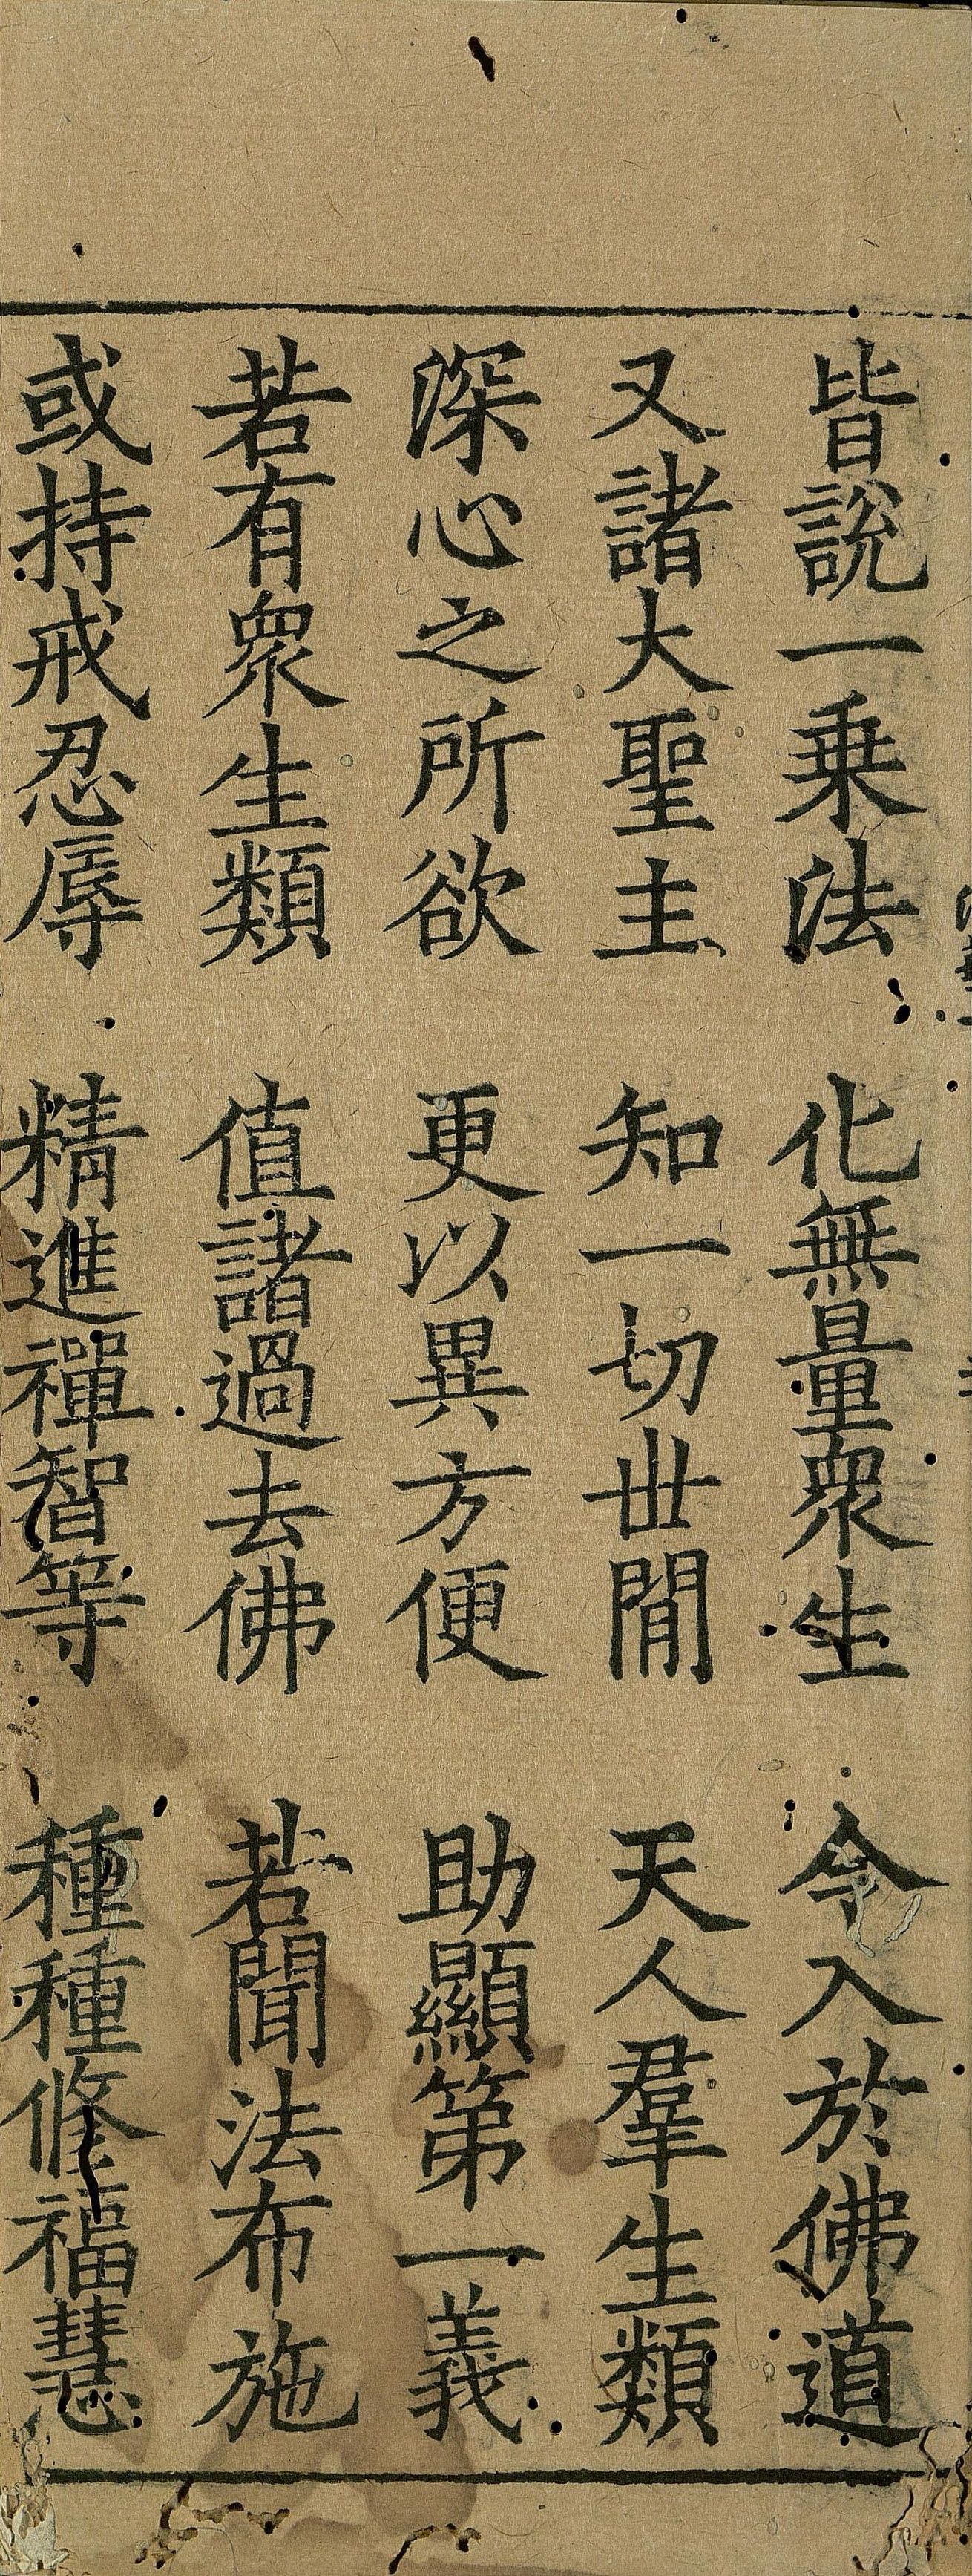 皆說一乗法 化無量衆生 令入於佛道
又諸大聖主 知一切世閒 天人羣生類
深心之所欲 更以異方便 助顯第一義
若有衆生類 值諸過去佛 若聞法布施
或持戒忍辱 精進禪智等 種種修福慧